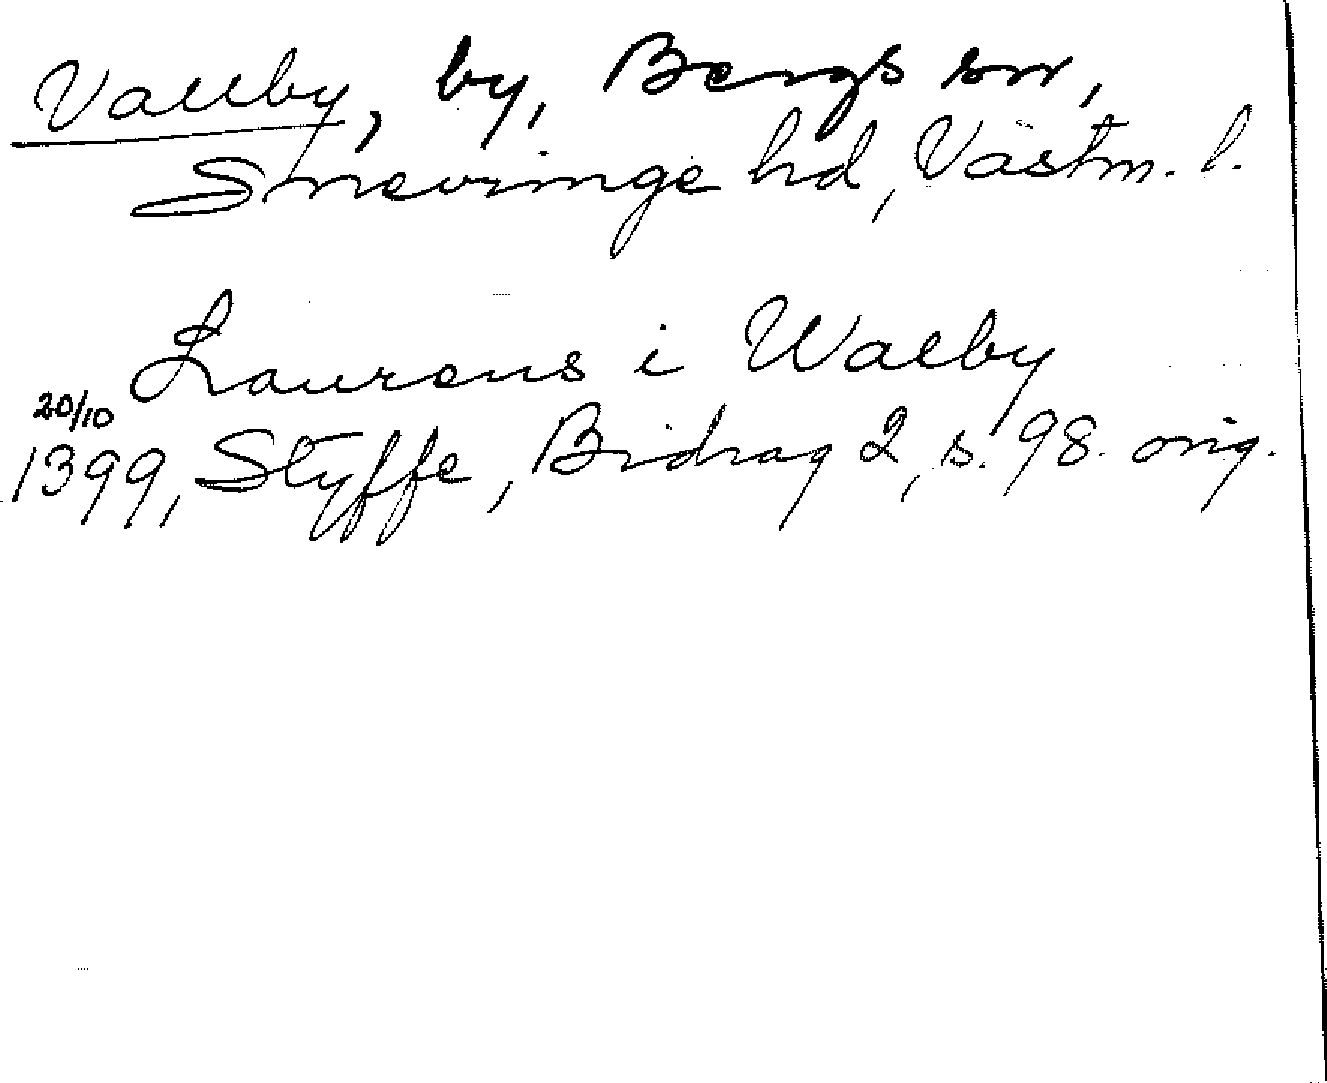 Vallby, by, Bergs sn,
Snevringe hd, Västm. l.
Laurens i Walby
20/10
1399, Styffe, Bidrag 2, s. 98. orig.